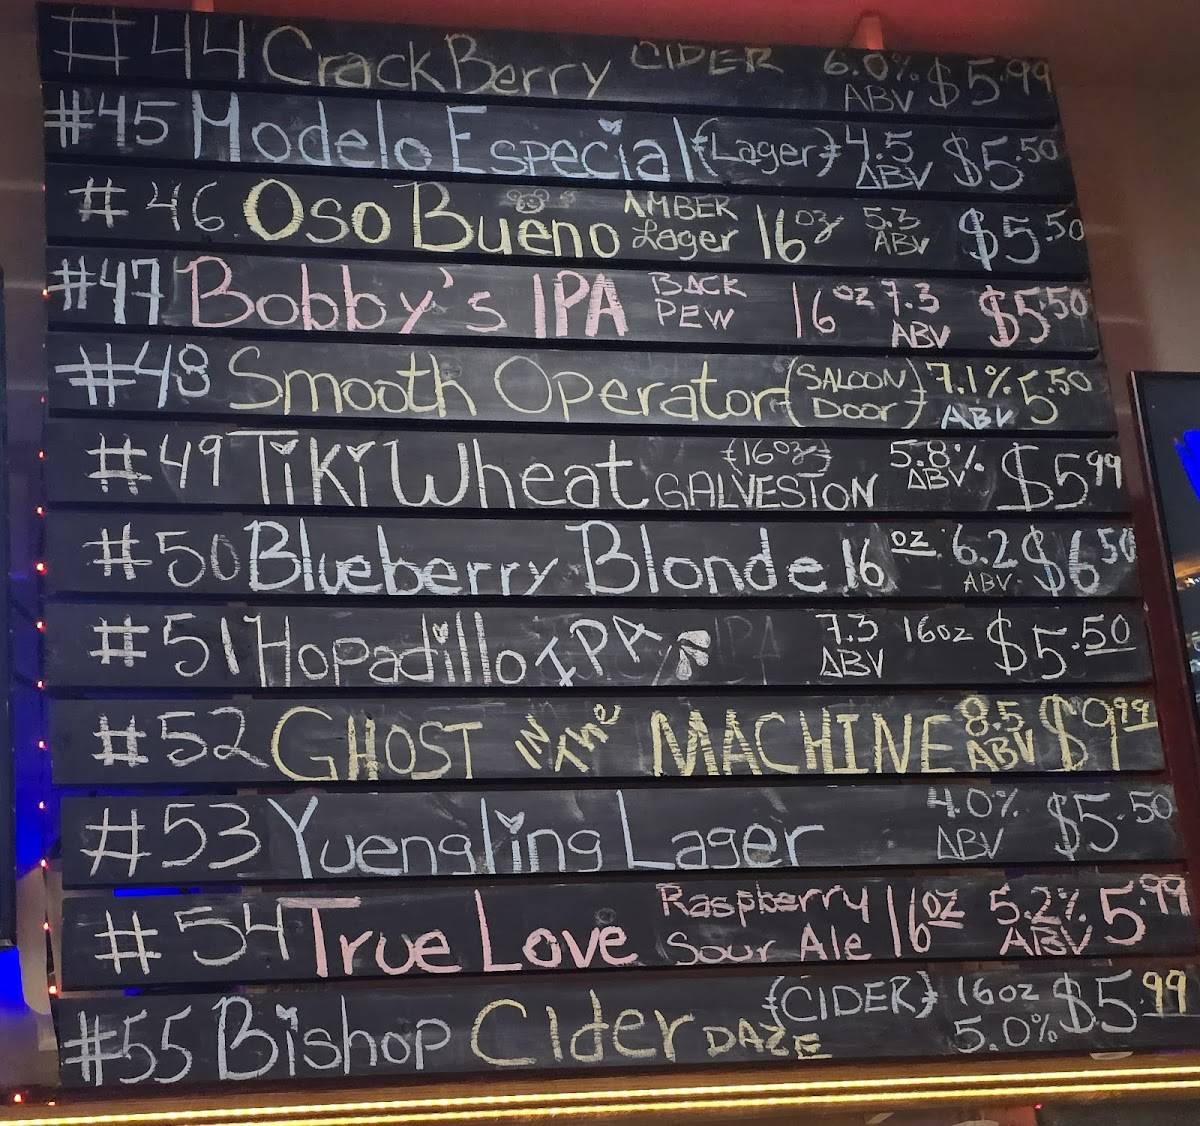 #44 CrackBerry CIDER 6.0% ABV $5.99
#45 Modelo Especial {Lager} 4.5 ABV $5.50
#46 Oso Bueno AMBER Lager 16oz 5.3 ABV $5.50
#47 Bobby's IPA BACK PEW 16oz 7.3 ABV $5.50
#48 Smooth Operator {SALOON DOOR} 7.1% ABV 5.50
#49 Tiki Wheat {16oz} GALVESTON 5.8% ABV $5.99
#50 Blueberry Blonde 16oz 6.2 ABV $6.50
#51 Hopadillo IPA 7.3 ABV 16oz $5.50
#52 GHOST IN THE MACHINE 8.5 ABV $9.99
#53 Yuengling Lager 4.0% ABV $5.50
#54 True Love Raspberry Sour Ale 16oz 5.2% ABV 5.99
#55 Bishop Cider DAZE {CIDER} 16oz 5.0% $5.99